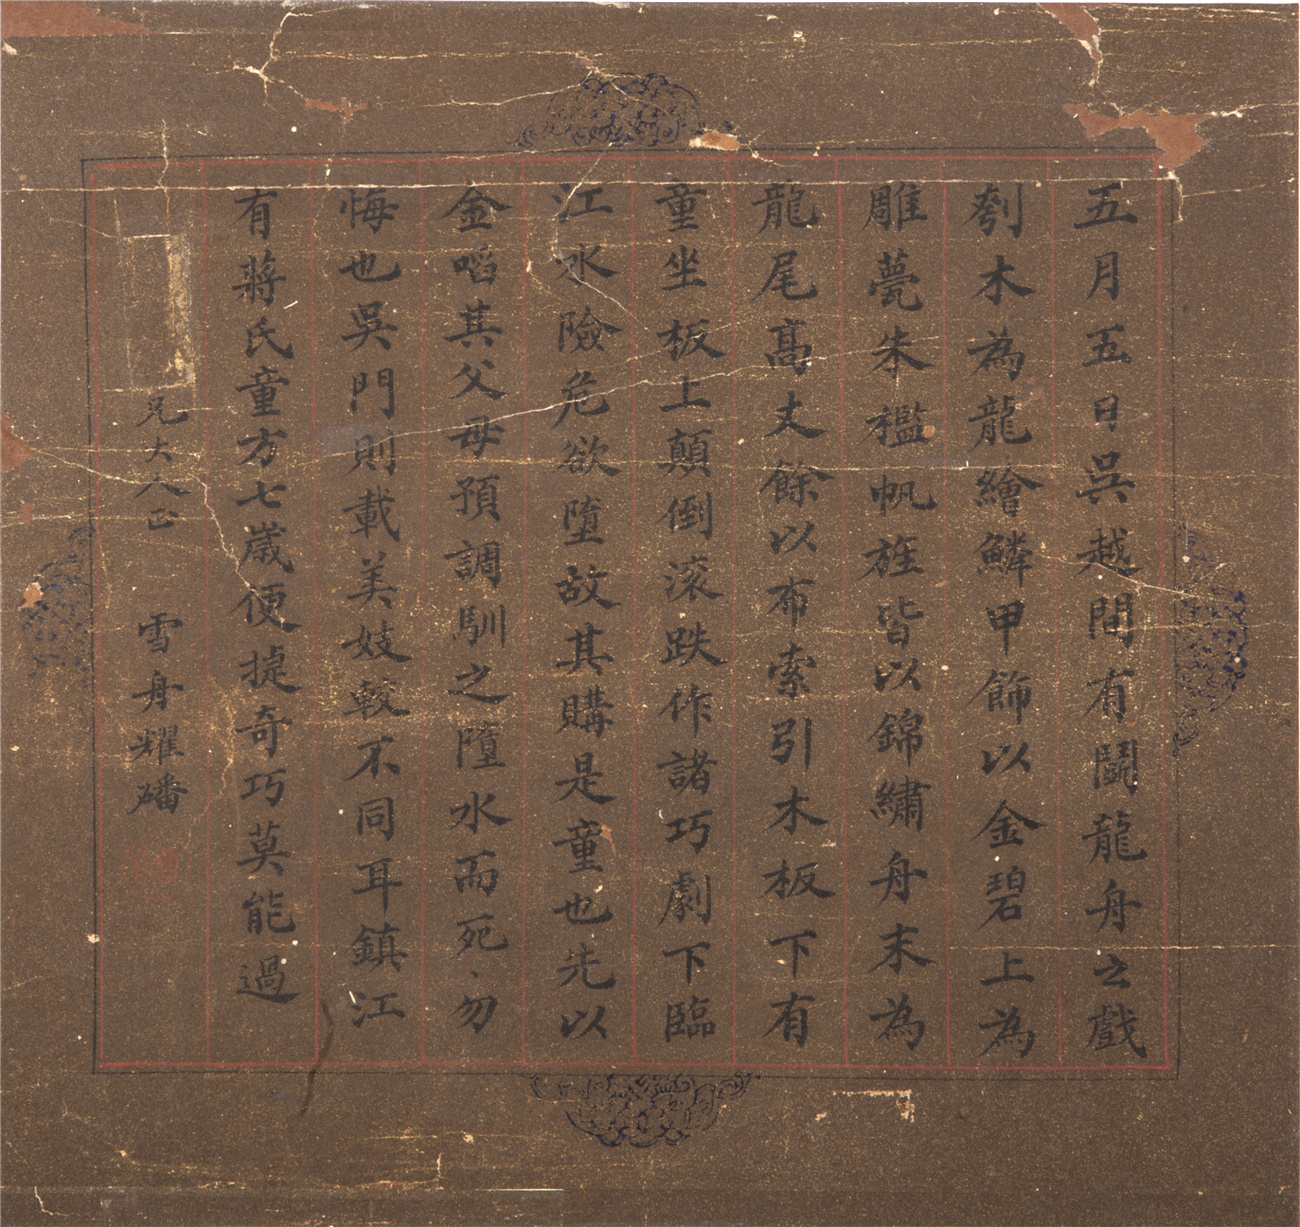 五月五日吳越間有鬭龍舟之戲
刳木為龍繪鱗甲飾以金碧上為
雕甍朱檻帆旌皆以錦繡舟末為
龍尾高丈餘以布索引木板下有
童坐板上顛倒滾跌作諸巧劇下臨
江水險危欲墮故其購是童也先以
金啗其父母預調馴之墮水而死、勿
悔也吳門則載美妓較不同耳鎮江
有蔣氏童方七歲便捷奇巧莫能過
兄大人正 雪舟耀磻